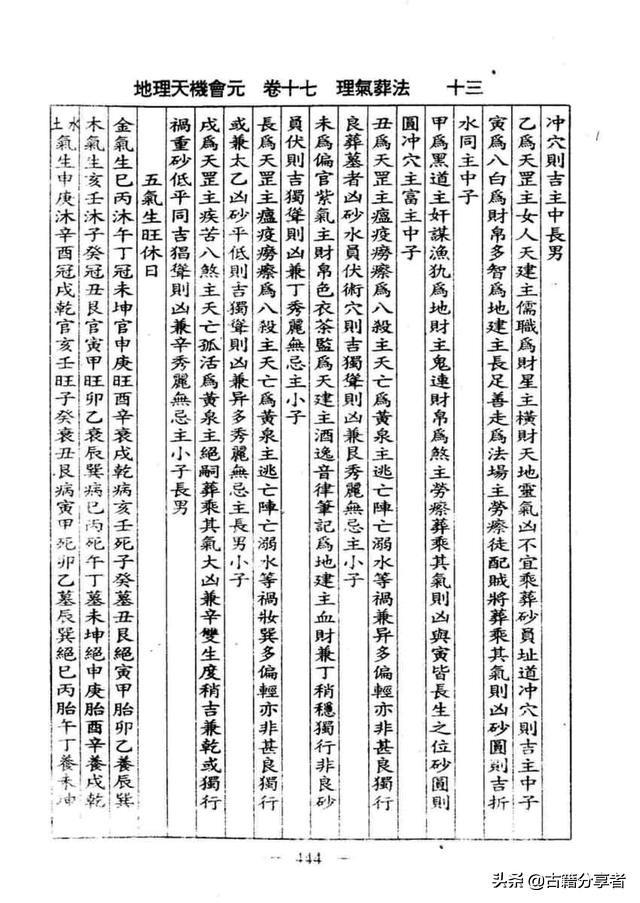 地理天機會元　卷十七　理氣葬法　十三
冲穴則吉主中長男
乙爲天罡主女人天建主儒職爲財星主橫財天地靈氣凶不宜乘葬砂員址道冲穴則吉主中子
寅爲八白爲財帛多智爲地建主長足善走爲法場主勞瘵徒配賊將葬乘其氣則凶砂圓則吉折
水同主中子
甲爲黑道主奸謀漁犰爲地財主鬼連財帛爲煞主勞瘵葬乘其氣則凶與寅皆長生之位砂圓則
圓冲穴主富主中子
丑爲天罡主瘟疫癆瘵爲八殺主天亡爲黃泉主逃亡陣亡溺水等禍兼異多偏輕亦非甚良獨行
良葬墓者凶砂水員伏術穴則吉獨聳則凶兼艮秀麗無忌主小子
未爲偏官紫氣主財帛色衣茶監爲天建主酒逸音律筆記爲地建主血財兼丁稍穩獨行非良砂
員伏則吉獨聳則凶兼丁秀麗無忌主小子
長爲天罡主瘟疫癆瘵爲八殺主天亡爲黃泉主逃亡陣亡溺水等禍妝巽多偏輕亦非甚良獨行
或兼太乙凶砂平低則吉獨聳則凶兼异多秀麗無忌主長男小子
戌爲天罡主疾苦八煞主天亡孤活爲黃泉主絕嗣葬乘其氣大凶兼辛雙生度稍吉兼乾或獨行
禍重砂低平同吉猖聳則凶兼辛秀麗無忌主小子長男
五氣生旺休日
金氣生巳丙沐午丁冠未坤官申庚旺酉辛衰戌乾病亥壬死子癸墓丑艮絕寅甲胎卯乙養辰巽
木氣生亥壬沐子癸冠丑艮官寅甲旺卯乙衰辰巽病巳丙死午丁墓未坤絕申庚胎酉辛養戌乾
水土氣生申庚沐辛酉冠戌乾官亥壬旺子癸衰丑艮病寅甲死卯乙墓辰巽絕巳丙胎午丁養未坤
— 444 —
头条 @古籍分享者